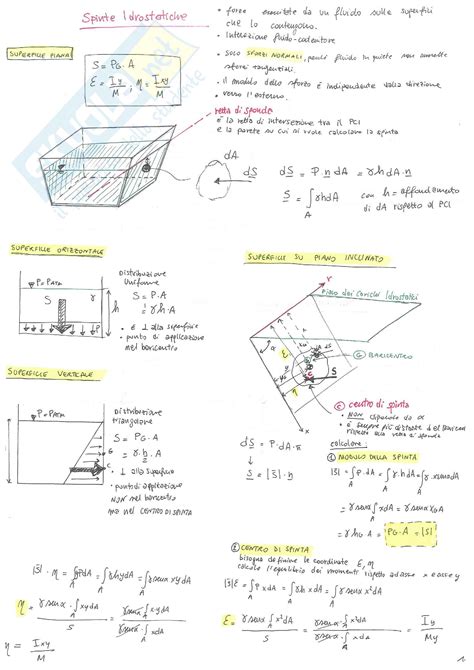 Spinte Idrostatiche
• forze esercitate da un fluido sulle superfici
che lo contengono.
• Interazione fluido-contenitore
• solo SFORZI NORMALI, perché fluido in quiete non ammette
sforzi tangenziali.
• il modulo dello sforzo è indipendente dalla direzione
• verso l'esterno.
SUPERFICIE PIANA
S = PG · A
ξ = Iy/M ; η = Ixy/M
retta di sponda
• è la retta di intersezione tra il PCI
e la parete su cui si vuole calcolare la spinta
dA
dS
dS = P · n dA = γh dA · n
S = ∫A γhdA
con h = affondamento
di dA rispetto al PCI
SUPERFICIE ORIZZONTALE
P = PATM
γ
S
h
P
Distribuzione
Uniforme
S = P · A
= γh · A
• è ⊥ alla superficie
• punto di applicazione
nel baricentro
SUPERFICIE VERTICALE
P = PATM
G
C
Distribuzione
triangolare
S = PG · A
= γ · h · A
• ⊥ alla superficie
• punto di applicazione
NON nel baricentro
ma nel CENTRO DI SPINTA
SUPERFICIE SU PIANO INCLINATO
Piano dei Carichi Idrostatici
Y
α
ξ
η
S
x
G BARICENTRO
C centro di spinta
• NON dipende da α
• è sempre più distante del Baricentro
rispetto alla retta di sponda
dS = P · dA · n
S = |S| · n
calcolare :
1 MODULO DELLA SPINTA
|S| = ∫A P dA = ∫A γh dA = ∫A γx senα dA
= γ senα ∫A x dA = γ senα xG A
= γ hG A = PG · A = |S|
2 CENTRO DI SPINTA
bisogna definire le coordinate ξ, η
calcolo l'equilibrio dei momenti rispetto ad asse x e asse y
|S| · η = ∫A PydA = ∫A γhydA = ∫A γ senα xy dA
η = γ senα · ∫A xy dA / S = γ senα · ∫A xy dA / γ senα · ∫A x dA
η = Ixy / M
|S|ξ = ∫A P x dA = ∫A γh x dA = ∫A γ senα x² dA
ξ = γ senα ∫A x² dA / S = γ senα · ∫A x² dA / γ senα · ∫A x dA = Iy / My